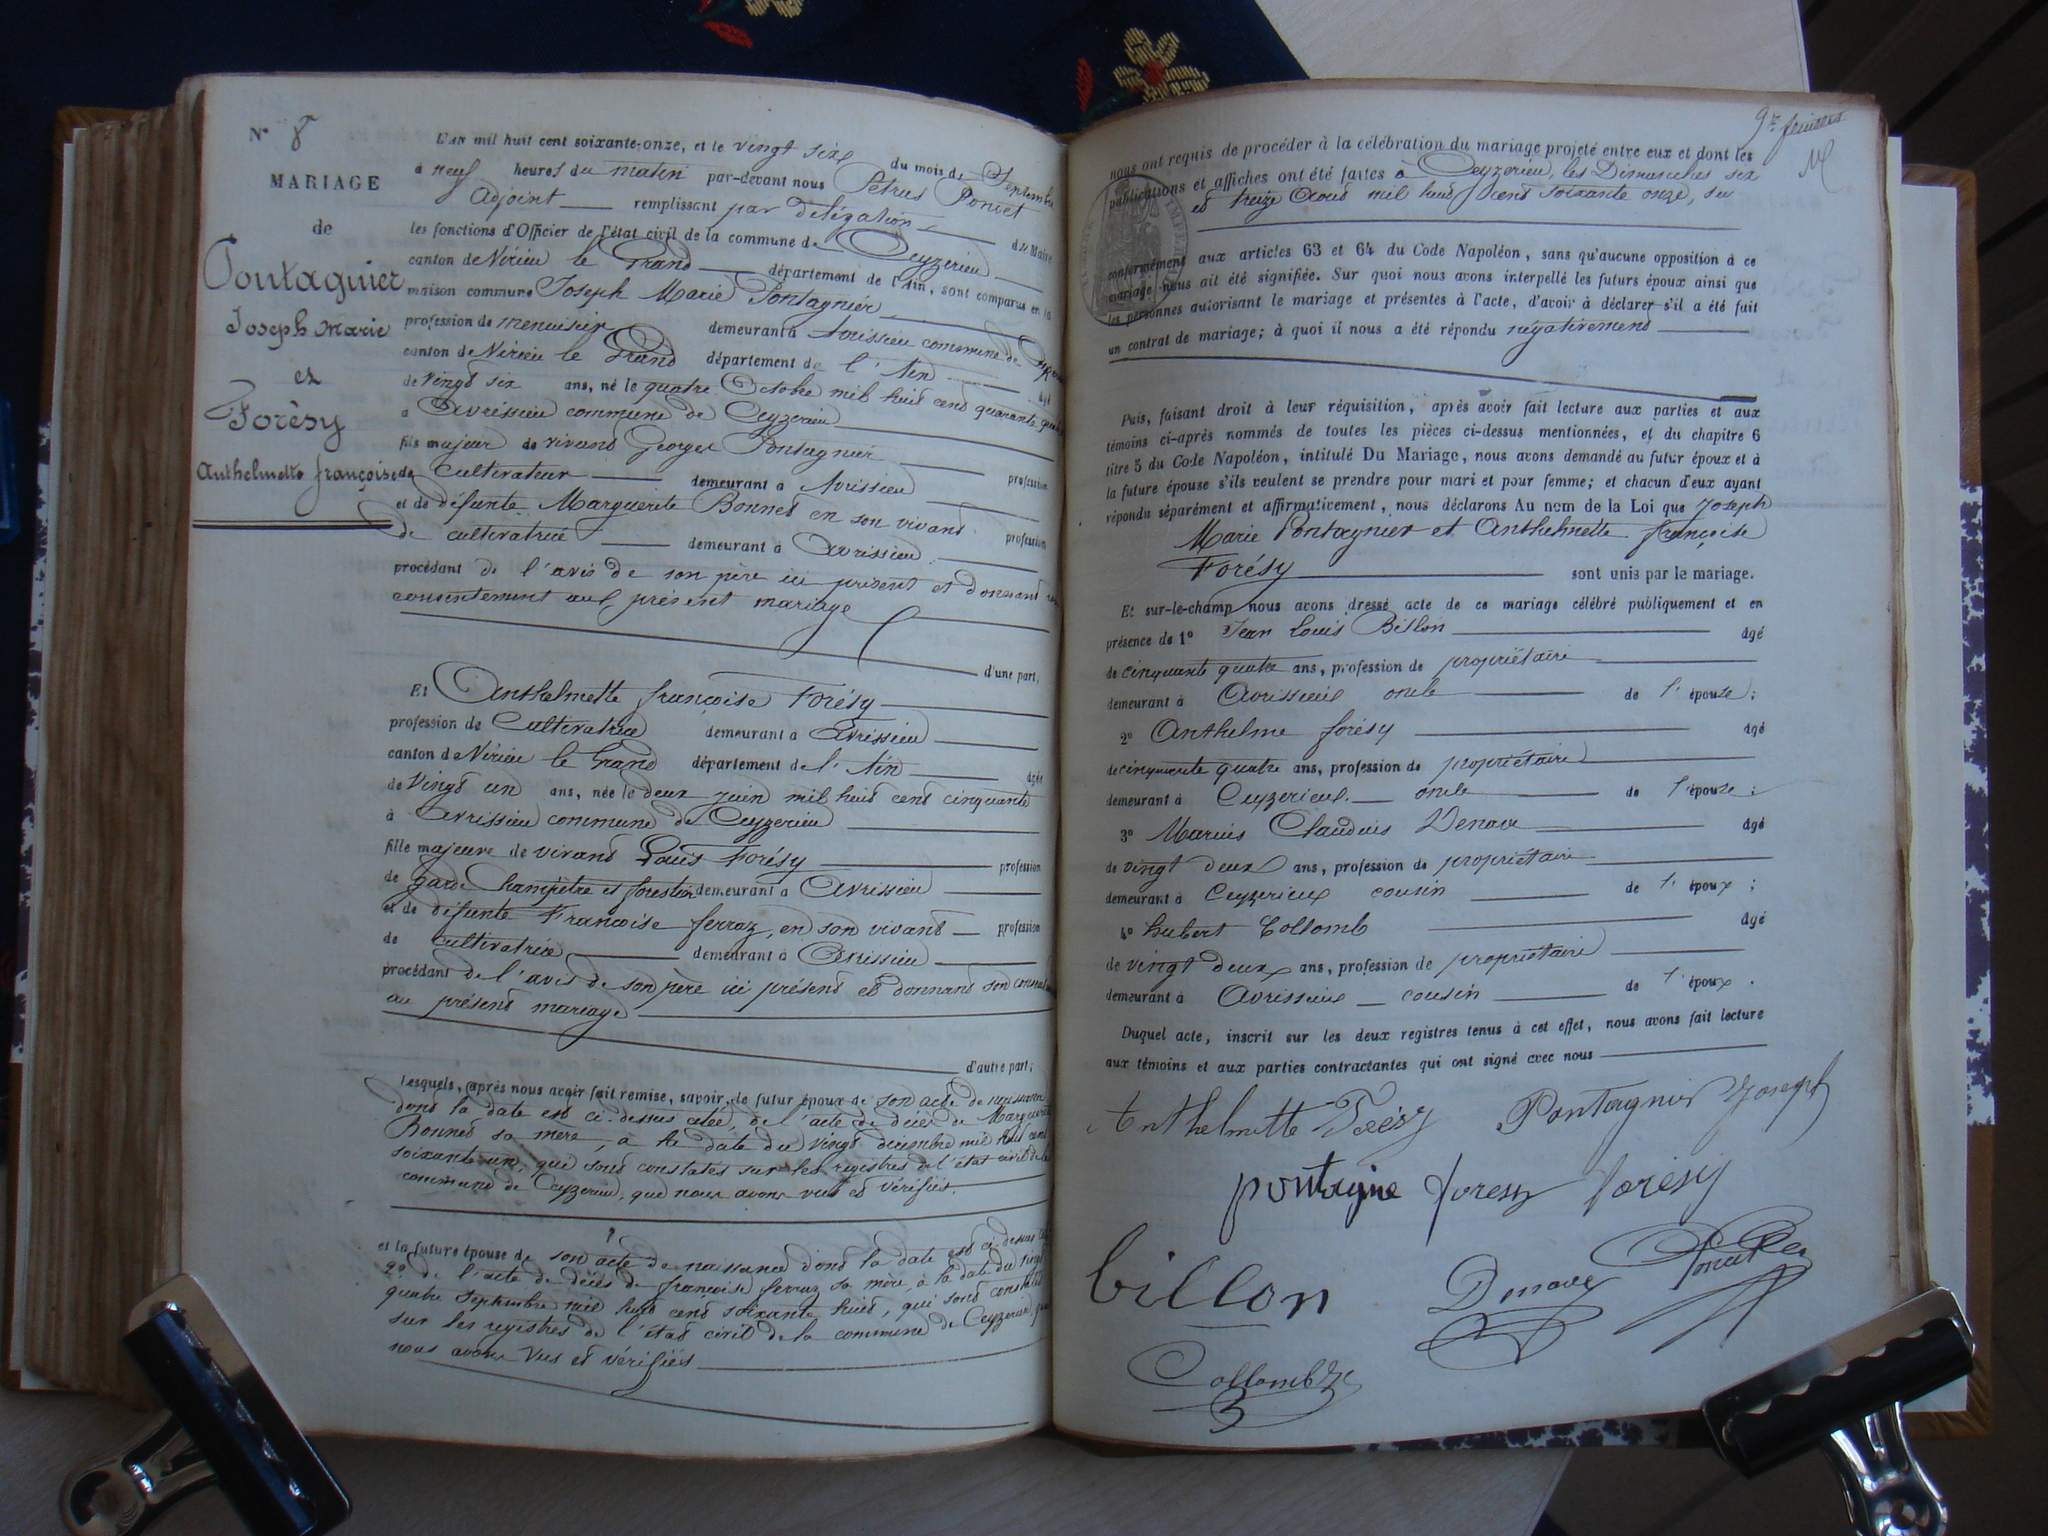 N° 8
MARIAGE
de
Pontagnier
Joseph Marie
et
Forésy
Anthelmette françoise
L'AN mil huit cent soixante-onze, et le vingt six du mois de Septembre
à neuf heures du matin par-devant nous Pétrus Poncet
Adjoint remplissant par délégation du Maire
les fonctions d'Officier de l'état civil de la commune de Ceyzerieu
canton de Virieu le Grand département de l'Ain, sont comparus en la
maison commune Joseph Marie Pontagnier
profession de menuisier demeurant à Avrissieu commune de
canton de Virieu le Grand département de l'Ain âgé
de vingt six ans, né le quatre Octobre mil huit cent quarante quatre
à Avrissieu commune de Ceyzerieu
fils majeur de vivant Georges Pontagnier profession
de Cultivateur demeurant à Avrissieu
et de défunte Marguerite Bonnet en son vivant profession
de cultivatrice demeurant à Avrissieu
procédant de l'avis de son père ici présent et donnant son
consentement au présent mariage
d'une part;
Et Anthelmette françoise Forésy
profession de Cultivatrice demeurant à Avrissieu
canton de Virieu le Grand département de l'Ain âgée
de Vingt un ans, née le deux juin mil huit cent cinquante
à Avrissieu commune de Ceyzerieu
fille majeure de vivant Louis Forésy profession
de garde Champêtre et forestier demeurant à Avrissieu
et de défunte Françoise ferraz, en son vivant profession
de cultivatrice demeurant à Avrissieu
procédant de l'avis de son père ici présent et donnant son consentement
au présent mariage
d'autre part;
Lesquels, après nous avoir fait remise, savoir, le futur époux de son acte de naissance
dont la date est ci-dessus citée, de l'acte de décès de Marguerite
Bonnet sa mère, à la date du vingt décembre mil huit cent
soixante un, que sont constatés sur les registres de l'état civil de la
commune de Ceyzerieu, que nous avons vus et vérifiés.
et la future épouse de son acte de naissance dont la date est ci-dessus
2° de l'acte de décès de françoise ferraz sa mère, à la date du vingt
quatre septembre mil huit cent soixante huit, qui sont constatés
sur les registres de l'état civil de la commune de Ceyzerieu que
nous avons vus et vérifiés
9e feuillet
nous ont requis de procéder à la célébration du mariage projeté entre eux et dont les
publications et affiches ont été faites à Ceyzerieu, les Dimanches six
et treize Aout mil huit cent soixante onze,
conformément aux articles 63 et 64 du Code Napoléon, sans qu'aucune opposition à ce
mariage nous ait été signifiée. Sur quoi nous avons interpellé les futurs époux ainsi que
les personnes autorisant le mariage et présentes à l'acte, d'avoir à déclarer s'il a été fait
un contrat de mariage; à quoi il nous a été répondu négativement
Puis, faisant droit à leur réquisition, après avoir fait lecture aux parties et aux
témoins ci-après nommés de toutes les pièces ci-dessus mentionnées, et du chapitre 6
titre 5 du Code Napoléon, intitulé Du Mariage, nous avons demandé au futur époux et à
la future épouse s'ils veulent se prendre pour mari et pour femme; et chacun d'eux ayant
répondu séparément et affirmativement, nous déclarons Au nom de la Loi que Joseph
Marie Pontagnier et Anthelmette françoise
Forésy sont unis par le mariage.
Et sur-le-champ nous avons dressé acte de ce mariage célébré publiquement et en
présence de 1° Jean Louis Billon âgé
de cinquante quatre ans, profession de propriétaire
demeurant à Avrissieu oncle de l'épouse;
2° Anthelme forésy âgé
de cinquante quatre ans, profession de propriétaire
demeurant à Ceyzerieu oncle de l'épouse;
3° Marius Claudius Denave âgé
de vingt deux ans, profession de propriétaire
demeurant à Ceyzerieu cousin de l'époux;
4° hubert Collomb âgé
de vingt deux ans, profession de propriétaire
demeurant à Avrissieu cousin de l'époux.
Duquel acte, inscrit sur les deux registres tenus à cet effet, nous avons fait lecture
aux témoins et aux parties contractantes qui ont signé avec nous
Anthelmette Forésy Pontagnier Joseph
pontagnie foresy forésy
billon Denave Poncet
Collomb